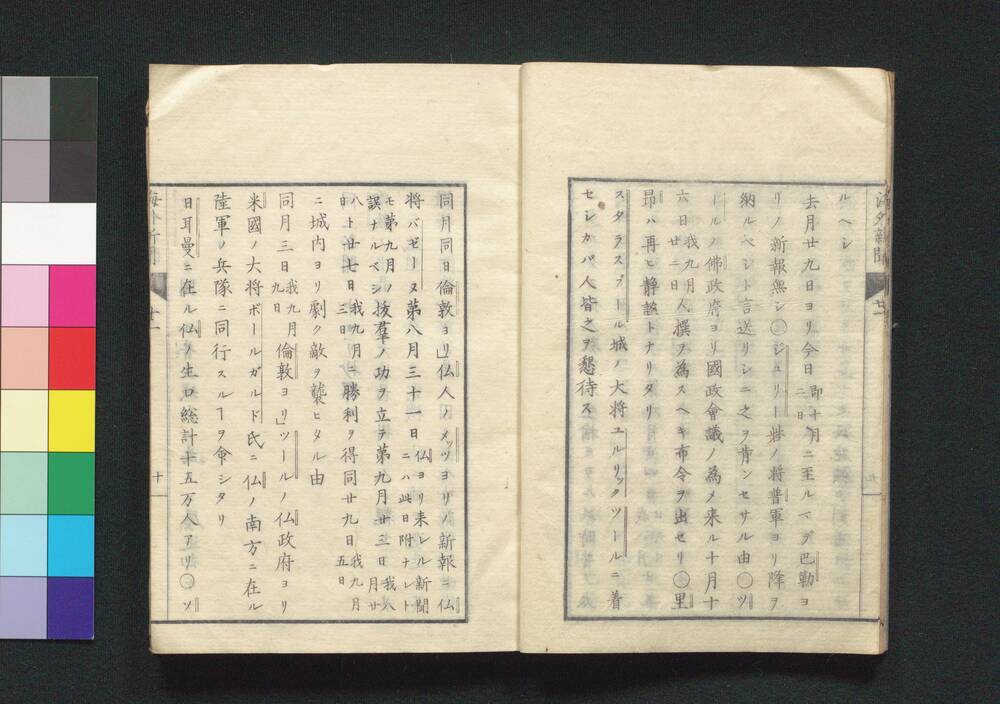 海外新聞
廿一
九
ルヘシ
去月廿九日ヨリ今日即十月二日ニ至ルマデ巴勒ヨ
リノ新報無シ〇ジュリー砦ノ将普軍ヨリ降ヲ
納ルベシト言送リシニ之ヲ肯ンセサル由〇ツ
ールノ佛政府ヨリ國政會議ノ為メ来ル十月十
六日我九月廿二日人撰ヲ為スヘキ布令ヲ出セリ〇里
昂ハ再ヒ静謐トナリタリ
スタラスブール城ノ大将ユルリックツールニ着
セシカバ人皆之ヲ懇待ス
同月同日倫敦ヨリ」仏人ノメッツヨリノ新報ニ仏
将バゼーヌ第八月三十一日仏ヨリ来レル新聞ニハ此日附ナレト
モ第九月ノ誤ナルベシ抜羣ノ功ヲ立テ第九月廿三日我八月廿
八日ト廿七日我九月三日ニ勝利ヲ得同廿九日我九月五日
ニ城内ヨリ劇ク敵ヲ襲ヒタル由
同月三日我九月九日倫敦ヨリ」ツールノ仏政府ヨリ
米國ノ大将ボールガルド氏ニ仏ノ南方ニ在ル
陸軍ノ兵隊ニ同行スルヿヲ命シタリ
日耳曼ニ在ル仏ノ生口総計十五万人アリ〇ツ
海外新聞
廿一
十